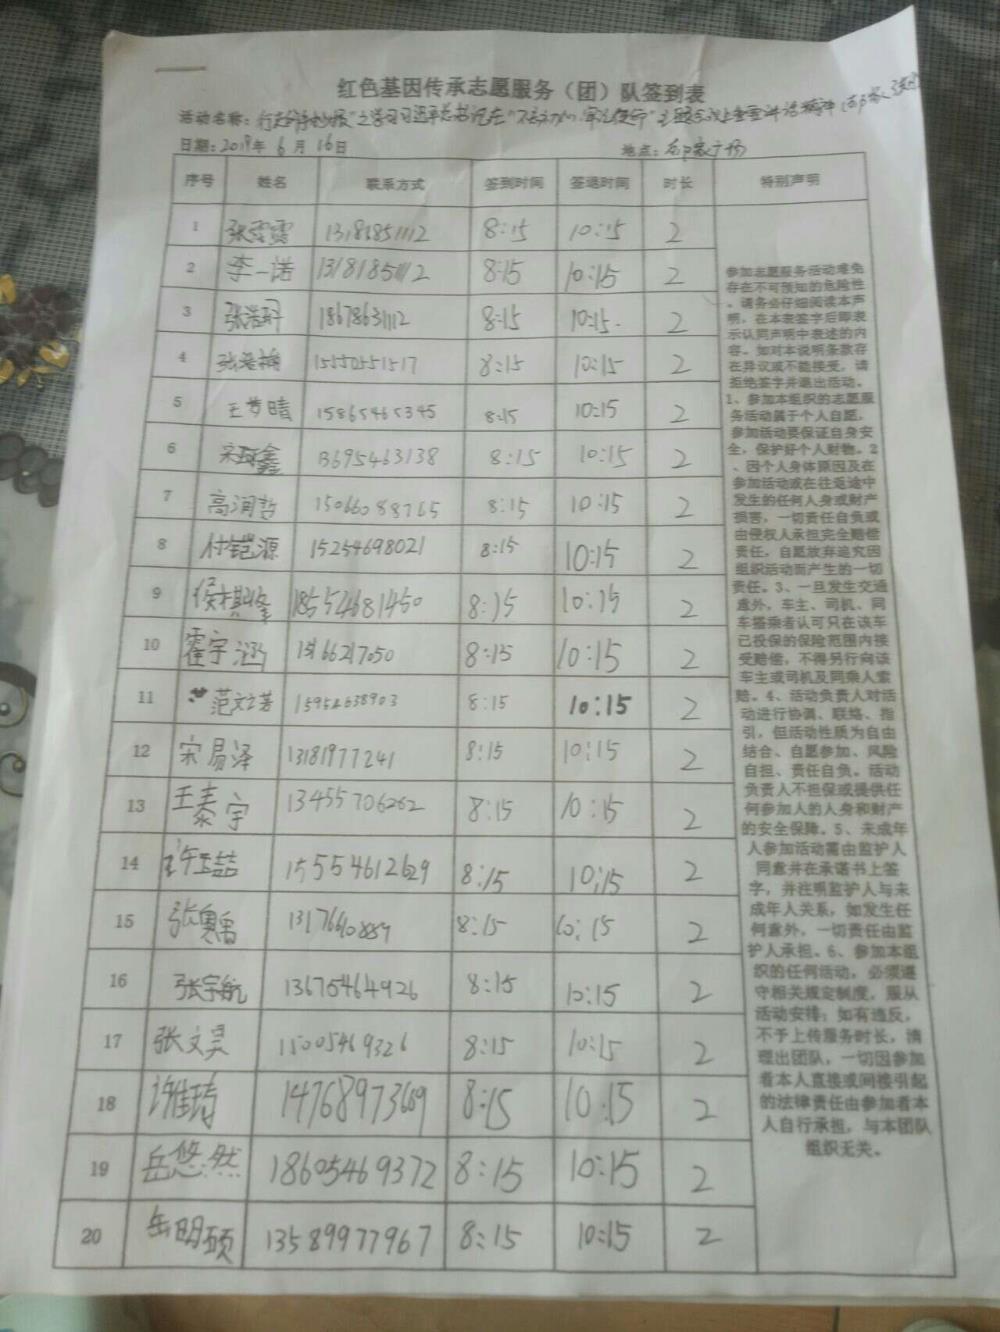 红色基因传承志愿服务（团）队签到表
活动名称：
日期：2019年 6月 16日 地点：
序号 姓名 联系方式 签到时间 签退时间 时长 特别声明
1 张雪霞 13181851112 8:15 10:15 2
2 李一诺 13181851112 8:15 10:15 2
3 18678631112 8:15 10:15 2
4 15550551517 8:15 10:15 2
5 王梦晴 15865465345 8:15 10:15 2
6 13695463138 8:15 10:15 2
7 高润哲 15066088765 8:15 10:15 2
8 付铠源 15254698021 8:15 10:15 2
9 侯棋峰 18554681450 8:15 10:15 2
10 霍宇涵 8:15 10:15 2
11 范文芳 8:15 10:15 2
12 宋易泽 13181977241 8:15 10:15 2
13 王泰宇 13455706262 8:15 10:15 2
14 许玉喆 15554612629 8:15 10:15 2
15 8:15 10:15 2
16 张宇航 13675464926 8:15 10:15 2
17 张文昊 15005469326 8:15 10:15 2
18 14768973689 8:15 10:15 2
19 岳悠然 18605469372 8:15 10:15 2
20 岳明硕 13589977967 8:15 10:15 2
参加志愿服务活动难免
存在不可预知的危险性
。请务必仔细阅读本声
明，在本表签字后即表
示认同声明中表述的内
容。如对本说明条款存
在异议或不能接受，请
拒绝签字并退出活动。
1、参加本组织的志愿服
务活动属于个人自愿，
参加活动要保证自身安
全，保护好个人财物。2
、因个人身体原因及在
参加活动或在往返途中
发生的任何人身或财产
损害，一切责任自负或
由侵权人承担完全赔偿
责任，自愿放弃追究因
组织活动而产生的一切
责任。3、一旦发生交通
意外，车主、司机、同
车搭乘者认可只在该车
已投保的保险范围内接
受赔偿，不得另行向该
车主或司机及同乘人索
赔。4、活动负责人对活
动进行协调、联络、指
引，但活动性质为自由
结合、自愿参加、风险
自担、责任自负。活动
负责人不担保或提供任
何参加人的人身和财产
的安全保障。5、未成年
人参加活动需由监护人
同意并在承诺书上签
字，并注明监护人与未
成年人关系，如发生任
何意外，一切责任由监
护人承担。6、参加本组
织的任何活动，必须遵
守相关规定制度，服从
活动安排；如有违反，
不予上传服务时长，清
理出团队，一切因参加
者本人直接或间接引起
的法律责任由参加者本
人自行承担，与本团队
组织无关。